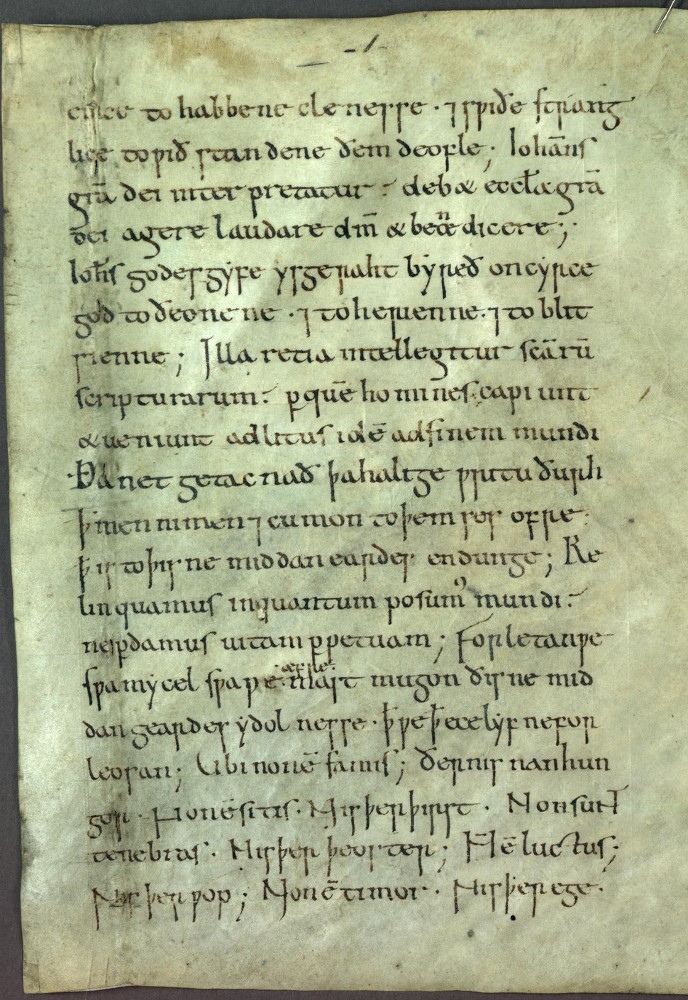 to habbene clenesse · ⁊ swiðe strang
lice to wið standene ðem deofle; Ioħaı̄s
grā dei inter pretatur : deb& eccl̄a grā
dei agere laudare dm̄ & bened̄icere;
Iohs̄ godes gyfe ys geraht byreð on cyrce
god to ðeonenne · ⁊ to herienne · ⁊ to blit
sienne; Illa retia intellegitur sc̄arū
scripturarum : ꝑ quē homines capiunt
& ueniunt ad litus id ē ad finem mundi
Ða net getacniað þa halige writu ðurh
ꝥ men nimen ⁊ cumon to þem ses ofre.
ꝥ is to þisne middaneardes endunge; Re
linquamus inquantum possum' mundi :
ne ꝑdamus uitam ꝑpetuam; Forletan we
swa mycel swa we mugon ðisne mid
dangeardes ydolnesse · ꝥ we ꝥ ece lyf ne for
leosan; Ubi non ē famis; ðer nis nan hun
gor · Non ē sitis · Nis þer þirst · Non sunt
tenebras · Nis þer þeoster; N ē luctus;
Nis þer wop; Non ē timor · Nis þer ege ·